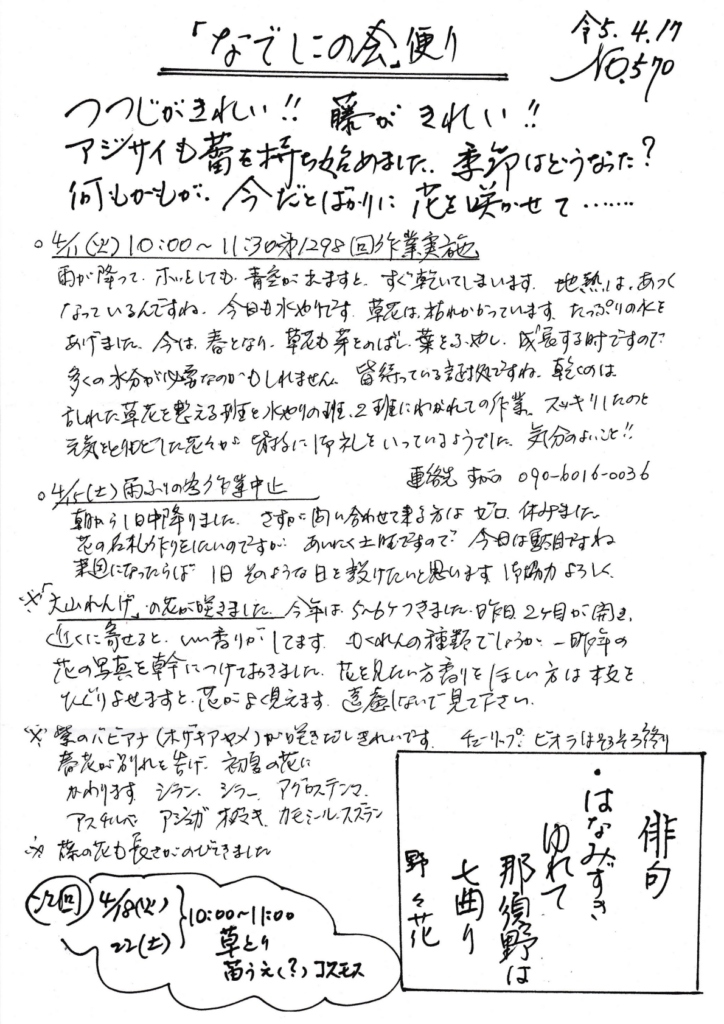 「なでしこの会」便り
令5.4.17
NO.570
つつじがきれい!! 藤がきれい!!
アジサイも蕾を持ち始めました. 季節はどうなった?
何もかもが、今だとばかりに花を咲かせて……
○4/11(火)10:00〜11:30 第1298回作業実施
雨が降って、ホッとしても、青空が出ますと、すぐ乾いてしまいます. 地熱は、あつく
なっているんですね. 今日も水やりです. 草花は、枯れかかっています. たっぷりの水を
あげました. 今は、春となり、草花も芽をのばし、葉をふやし、成長する時ですので
多くの水分が必要なのかもしれません. 皆待っている証拠ですね. 乾くのは
乱れた草花を整える班と水やりの班、2班にわかれての作業. スッキリしたのと
元気をとりもどした花々がお礼をいっているようでした. 気分のよいこと!!
連絡先 すがの 090-6016-0036
○4/15(土)雨ふりの為作業中止
朝から1日中降りました. さすがに問い合わせて来る方はゼロ. 休みました
花の名札作りをしたいのですが、あいにく土曜ですので、今日は駄目ですね
来週になったらば 1日そのような日を設けたいと思います 御協力よろしく.
※「大山れんげ」の花が咲きました. 今年は、5〜6ケつきました. 昨日、2ケ目が開き、
近くに寄せると、いい香りがしてます. もくれんの種類でしょうか. 一昨年の
花の写真を幹につけておきました. 花を見たい方香りをほしい方は本支を
ひぐりよせますと、花がよく見えます. 遠慮しないで見て下さい.
※ 紫のバビアナ(ホザキアヤメ)が咲きだしきれいです. チューリップ、ビオラはそろそろ終り
春花が別れを告げ、初夏の花に
かわります シラン、シラー、アグロステンマ、
アスチルベ アジュガ オダマキ、カモミール、スズラン
※ 藤の花も長さがのびてきました
俳句
・はなみずき
ゆれて
那須野は
七曲り
野々花
次回 4/18(火)
22(土)
10:00〜11:00
草とり
苗うえ(?) コスモス